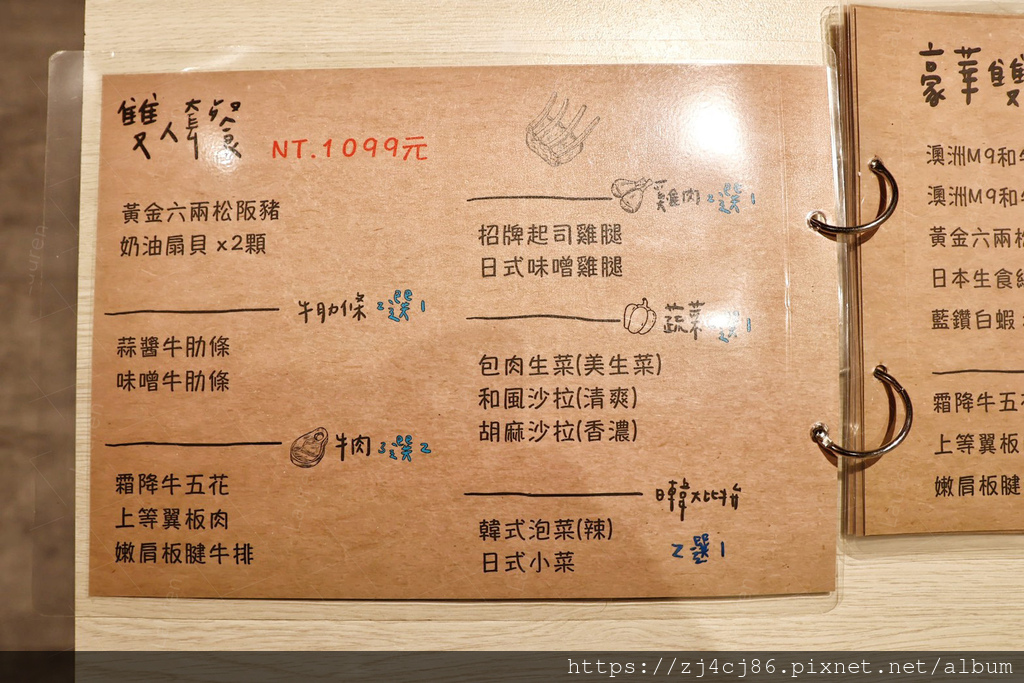 雙人套餐
NT.1099元
黃金六兩松阪豬
奶油扇貝 x2顆
牛肋條 2選1
蒜醬牛肋條
味噌牛肋條
牛肉 3選2
霜降牛五花
上等翼板肉
嫩肩板腱牛排
雞肉 2選1
招牌起司雞腿
日式味噌雞腿
蔬菜 選1
包肉生菜(美生菜)
和風沙拉(清爽)
胡麻沙拉(香濃)
日韓大比拚
2選1
韓式泡菜(辣)
日式小菜
豪華雙
澳洲M9和牛
澳洲M9和牛
黃金六兩松
日本生食級
藍鑽白蝦
霜降牛五花
上等翼板
嫩肩板腱
https://zj4cj86.pixnet.net/album